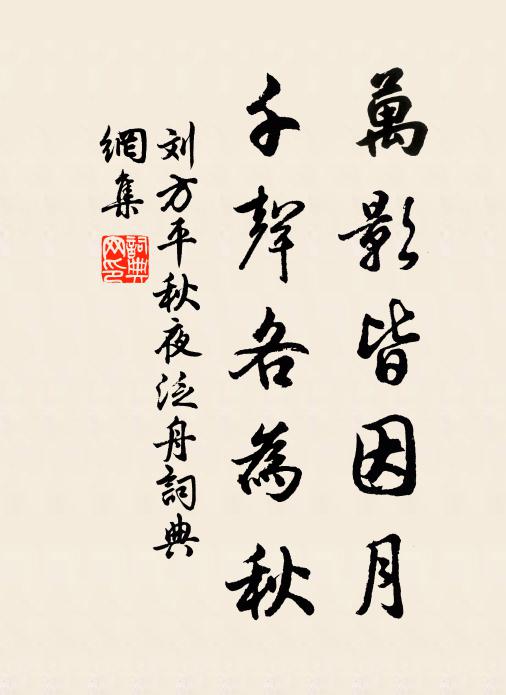 萬影皆因月
千聲各為秋
刘方平秋夜泛舟詞典
網集
詞典網印